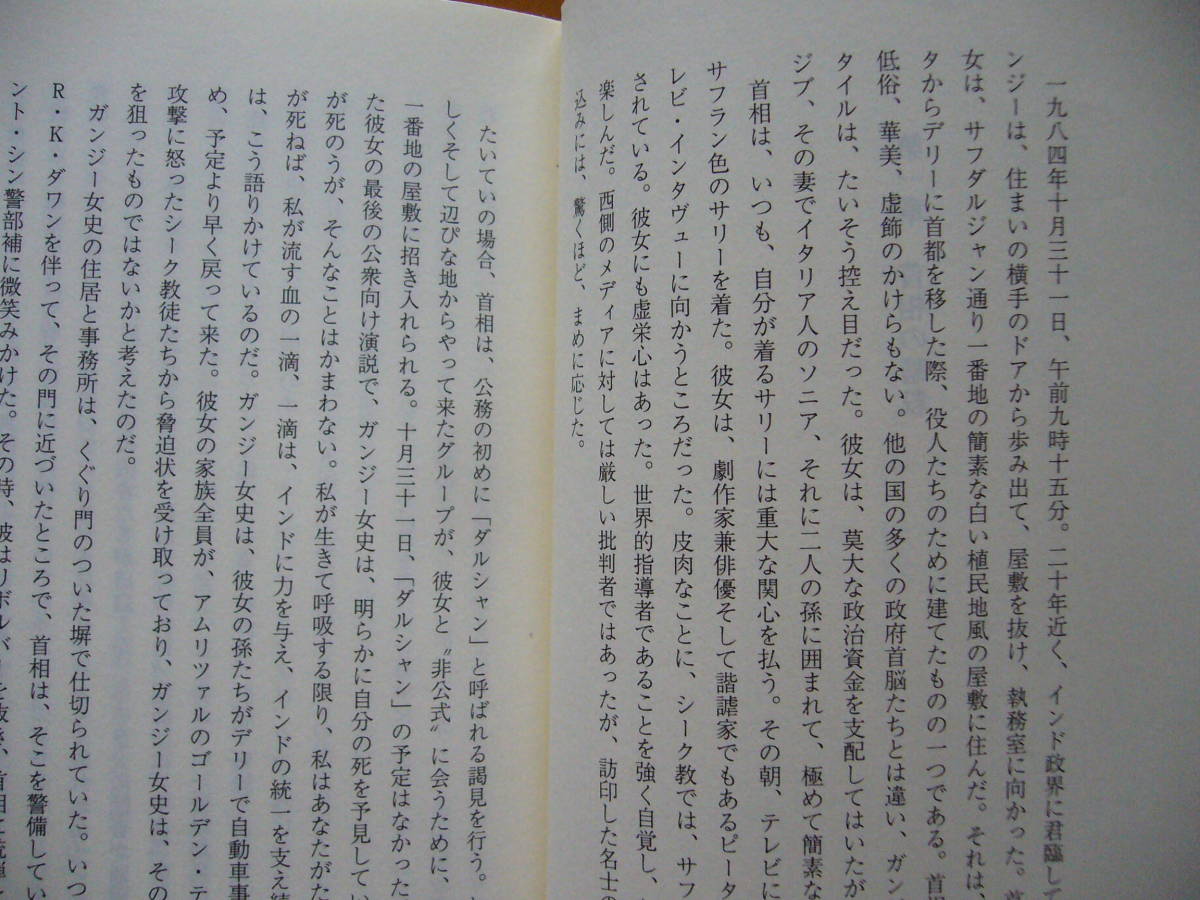 一九八四年十月三十一日、午前九時十五分。二十年近く、インド政界に君臨して
ンジーは、住まいの横手のドアから歩み出て、屋敷を抜け、執務室に向かった。
女は、サフダルジャン通り一番地の簡素な白い植民地風の屋敷に住んだ。それは、
タからデリーに首都を移した際、役人たちのために建てたものの一つである。首
低俗、華美、虚飾のかけらもない。他の国の多くの政府首脳たちとは違い、ガン
タイルは、たいそう控え目だった。彼女は、莫大な政治資金を支配してはいたが
ジブ、その妻でイタリア人のソニア、それに二人の孫に囲まれて、極めて簡素な
首相は、いつも、自分が着るサリーには重大な関心を払う。その朝、テレビに
サフラン色のサリーを着た。彼女は、劇作家兼俳優そして諧謔家でもあるピータ
レビ・インタヴューに向かうところだった。皮肉なことに、シーク教では、サフ
されている。彼女にも虚栄心はあった。世界的指導者であることを強く自覚し、
楽しんだ。西側のメディアに対しては厳しい批判者ではあったが、訪印した名士の
込みには、驚くほど、まめに応じた。
たいていの場合、首相は、公務の初めに「ダルシャン」と呼ばれる謁見を行う。
しくそして辺ぴな地からやって来たグループが、彼女と〝非公式〟に会うために、
一番地の屋敷に招き入れられる。十月三十一日、「ダルシャン」の予定はなかった
た彼女の最後の公衆向け演説で、ガンジー女史は、明らかに自分の死を予見してい
が死のうが、そんなことはかまわない。私が生きて呼吸する限り、私はあなたがた
が死ねば、私が流す血の一滴、一滴は、インドに力を与え、インドの統一を支え続
は、こう語りかけているのだ。ガンジー女史は、彼女の孫たちがデリーで自動車事
め、予定より早く戻って来た。彼女の家族全員が、アムリツァルのゴールデン・テ
攻撃に怒ったシーク教徒たちから脅迫状を受け取っており、ガンジー女史は、その
を狙ったものではないかと考えたのだ。
ガンジー女史の住居と事務所は、くぐり門のついた塀で仕切られていた。いつ
R・K・ダワンを伴って、その門に近づいたところで、首相は、そこを警備してい
ント・シン警部補に微笑みかけた。その時、彼はリボルバーを抜き、首相に銃弾